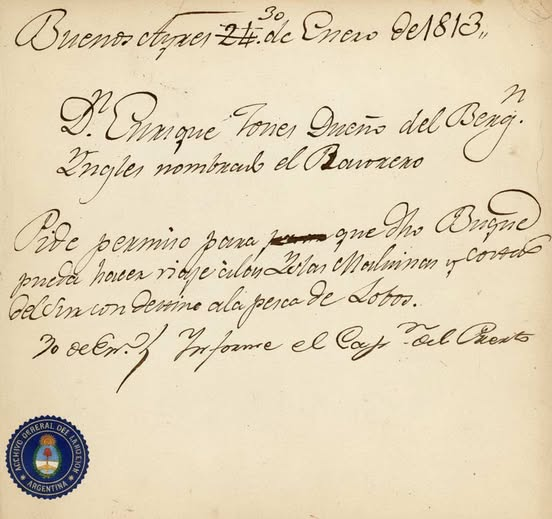 Buenos Ayres 24. 30 de Enero de 1813,,
Dn. Enrique Jones Dueño del Bergn.
Yngles nombrado el Rastrero
Pide permiso para para que dho Buque
pueda hacer viaje a las Yslas Malvinas y costas
del Sur con destino a la pesca de Lobos.
30 de Enº. Informe el Capn. del Puerto
ARCHIVO GENERAL DE LA NACION
ARGENTINA